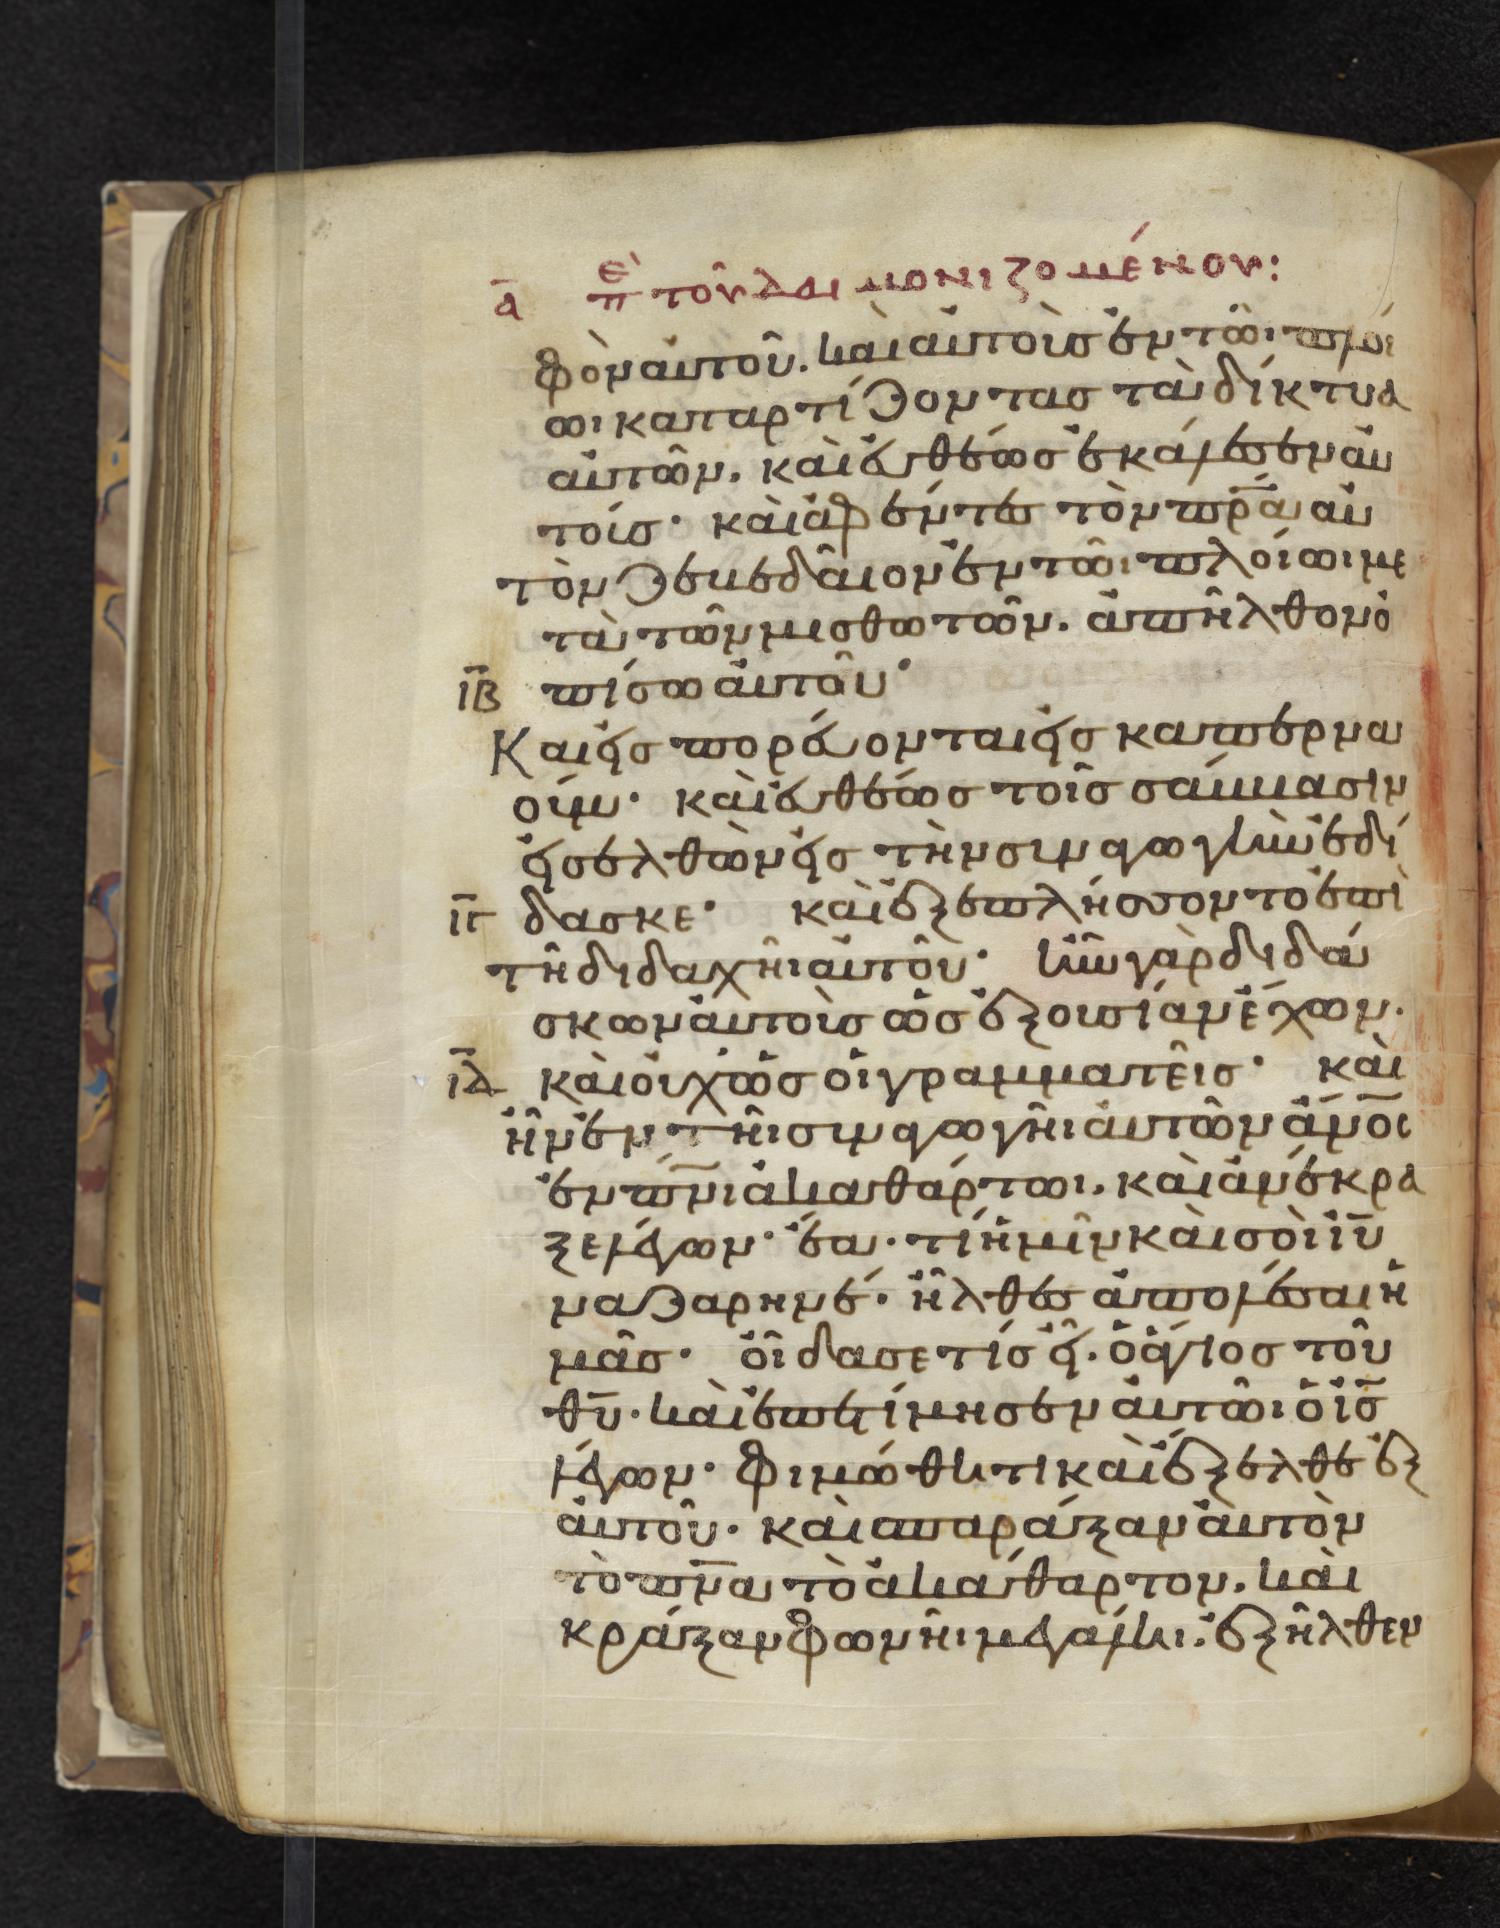 α̅ πὲ τοῦ δαιμονιζομένου:
φὸν αὐτοῦ. καὶ αὐτοὺς ἐν τῶι πλοί
ωι καταρτίζοντας τὰ δίκτυα
αὐτῶν. καὶ ἐυθέως ἐκάλεσεν ἀυ
τούς· καὶ ἀφέντες τὸν π̅ρ̅α̅ αὐ
τὸν Ζεβεδᾶιον ἐν τῶι πλοίωι με
τὰ τῶν μισθωτῶν. ἀπῆλθον ὀ
ι̅β̅ πίσω ἀυτοῦ·
Και εἰς πορεύονται εἰς καπερνα
ούμ· καὶ ἐυθέως τοῖς σάββασιν
εἰσελθὼν εἰς τὴν συναγωγὴν ἐδί
ι̅γ̅ δασκε· καὶ ἐξεπλήσσοντο ἐπὶ
τῆ διδαχῆι ἀυτοῦ· ἦν γὰρ διδά
σκων ἀυτοὺς ὡς ἐξουσίαν ἔχων.
ι̅δ̅ καὶ οὐχ ὡς οἱ γραμματεῖς· καὶ
ἦν ἐν τῆι συναγωγῆι ἀυτῶν α̅ν̅ο̅ς̅
ἐν π̅ν̅ι̅ ἀκαθάρτωι. καὶ ἀνέκρα
ξε λέγων· ἔα· τί ἡμῖν καὶ σοὶ ι̅υ̅
ναζαρηνέ· ἦλθες ἀπολέσαι ἡ
μᾶς· οἶδα σε τίς εἶ. ὁ ἅγιος τοῦ
θ̅υ̅· καὶ ἐπετίμησεν ἀυτῶι ὁ ι̅ς̅
λέγων· φιμώθητι καὶ ἔξελθε ἐξ
ἀυτοῦ· καὶ σπαράξαν ἀυτὸν
τὸ π̅ν̅α̅ τὸ ἀκάθαρτον. καὶ
κράξαν φωνῆι μεγάλη. ἐξῆλθεν